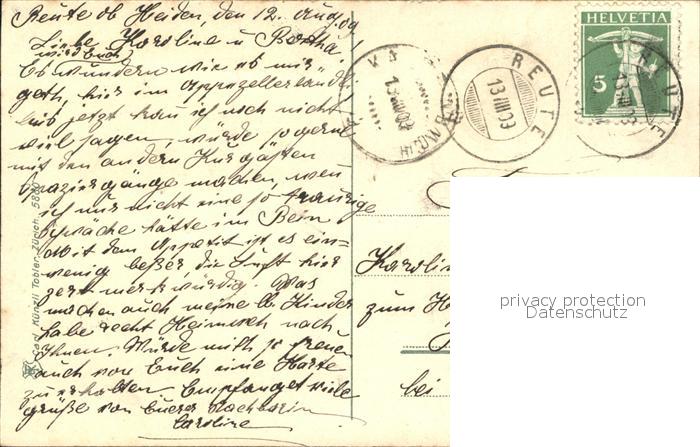 Reute ob Heiden, den 12. Aug. 09
Liebe Karoline u Bertha!
wird Euch
Es wundern wie es mir
geht, hier im Appenzellerland,
bis jetzt kann ich noch nicht
viel sagen, würde so gerne
mit den andern Kurgästen
Spaziergänge machen, wen
ich nur nicht eine so traurige
Schwäche hätte im Bein
Mit dem Appetit ist es ein=
wenig besser, die Luft hier
zert merkwürdig. Was
machen auch meine lb. Kinder
habe recht Heimweh nach
Ihnen. Würde mich so freuen
auch von Euch eine Karte
zu erhalten Empfanget viele
grüße von Eurer Nachbarin
Caroline
Carl Künzli Tobler, Zürich. 5880
HELVETIA
5
REUTE
13 VIII 09
REUTE
13 VIII 09
13 VIII 09
Karolin
zum H
bei
privacy protection
Datenschutz